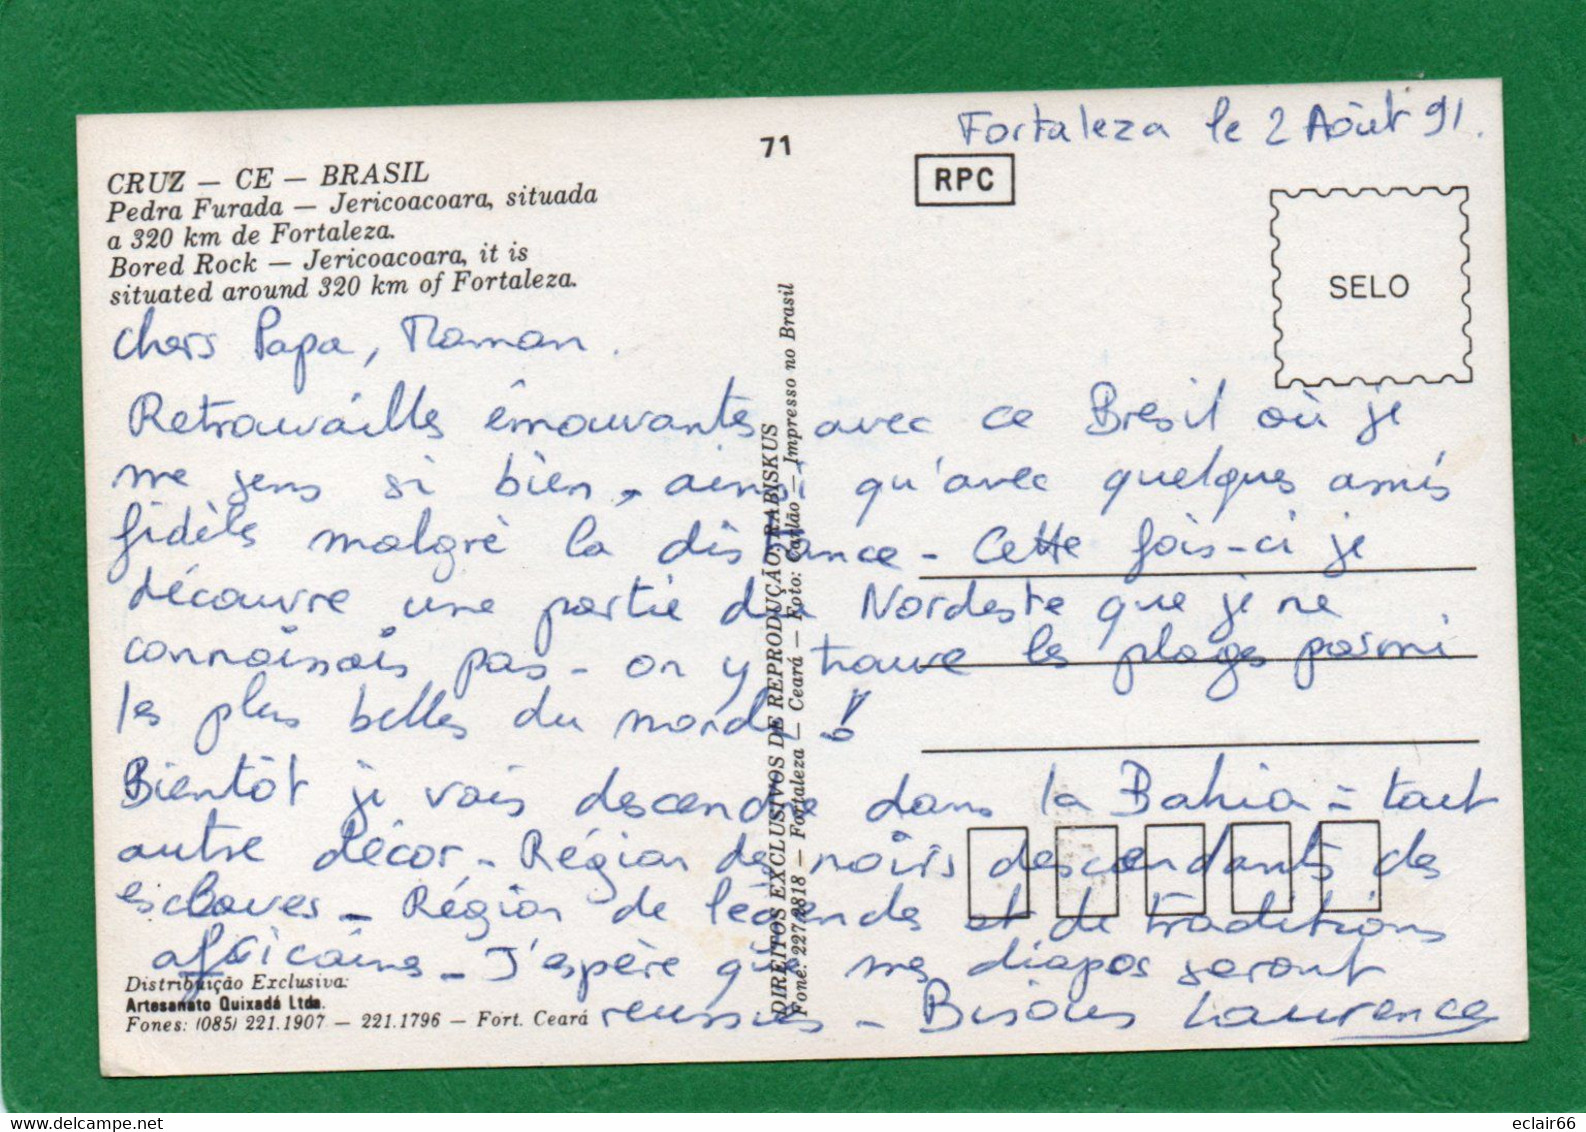 Fortaleza le 2 Août 91.
71
RPC
SELO
CRUZ — CE — BRASIL
Pedra Furada — Jericoacoara, situada
a 320 km de Fortaleza.
Bored Rock — Jericoacoara, it is
situated around 320 km of Fortaleza.
Chers Papa, Maman.
Retrouvailles émouvantes avec ce Brésil où je
me sens si bien, ainsi qu'avec quelques amis
fidèles malgré la distance - Cette fois-ci je
découvre une partie du Nordeste que je ne
connaissais pas - on y trouve les plages parmi
les plus belles du monde !
Bientôt je vais descendre dans la Bahia = tout
autre décor - Région de noirs descendants des
esclaves - Région de légendes et de traditions
africaines - J'espère que mes diapos seront
réussies - Bisous Laurence
DIREITOS EXCLUSIVOS DE REPRODUÇÃO: RABISKUS
Fone: 227.2818 — Fortaleza — Ceará — Foto: — Impresso no Brasil
Distribuição Exclusiva:
Artesanato Quixadá Ltda.
Fones: (085) 221.1907 — 221.1796 — Fort. Ceará
eclair66